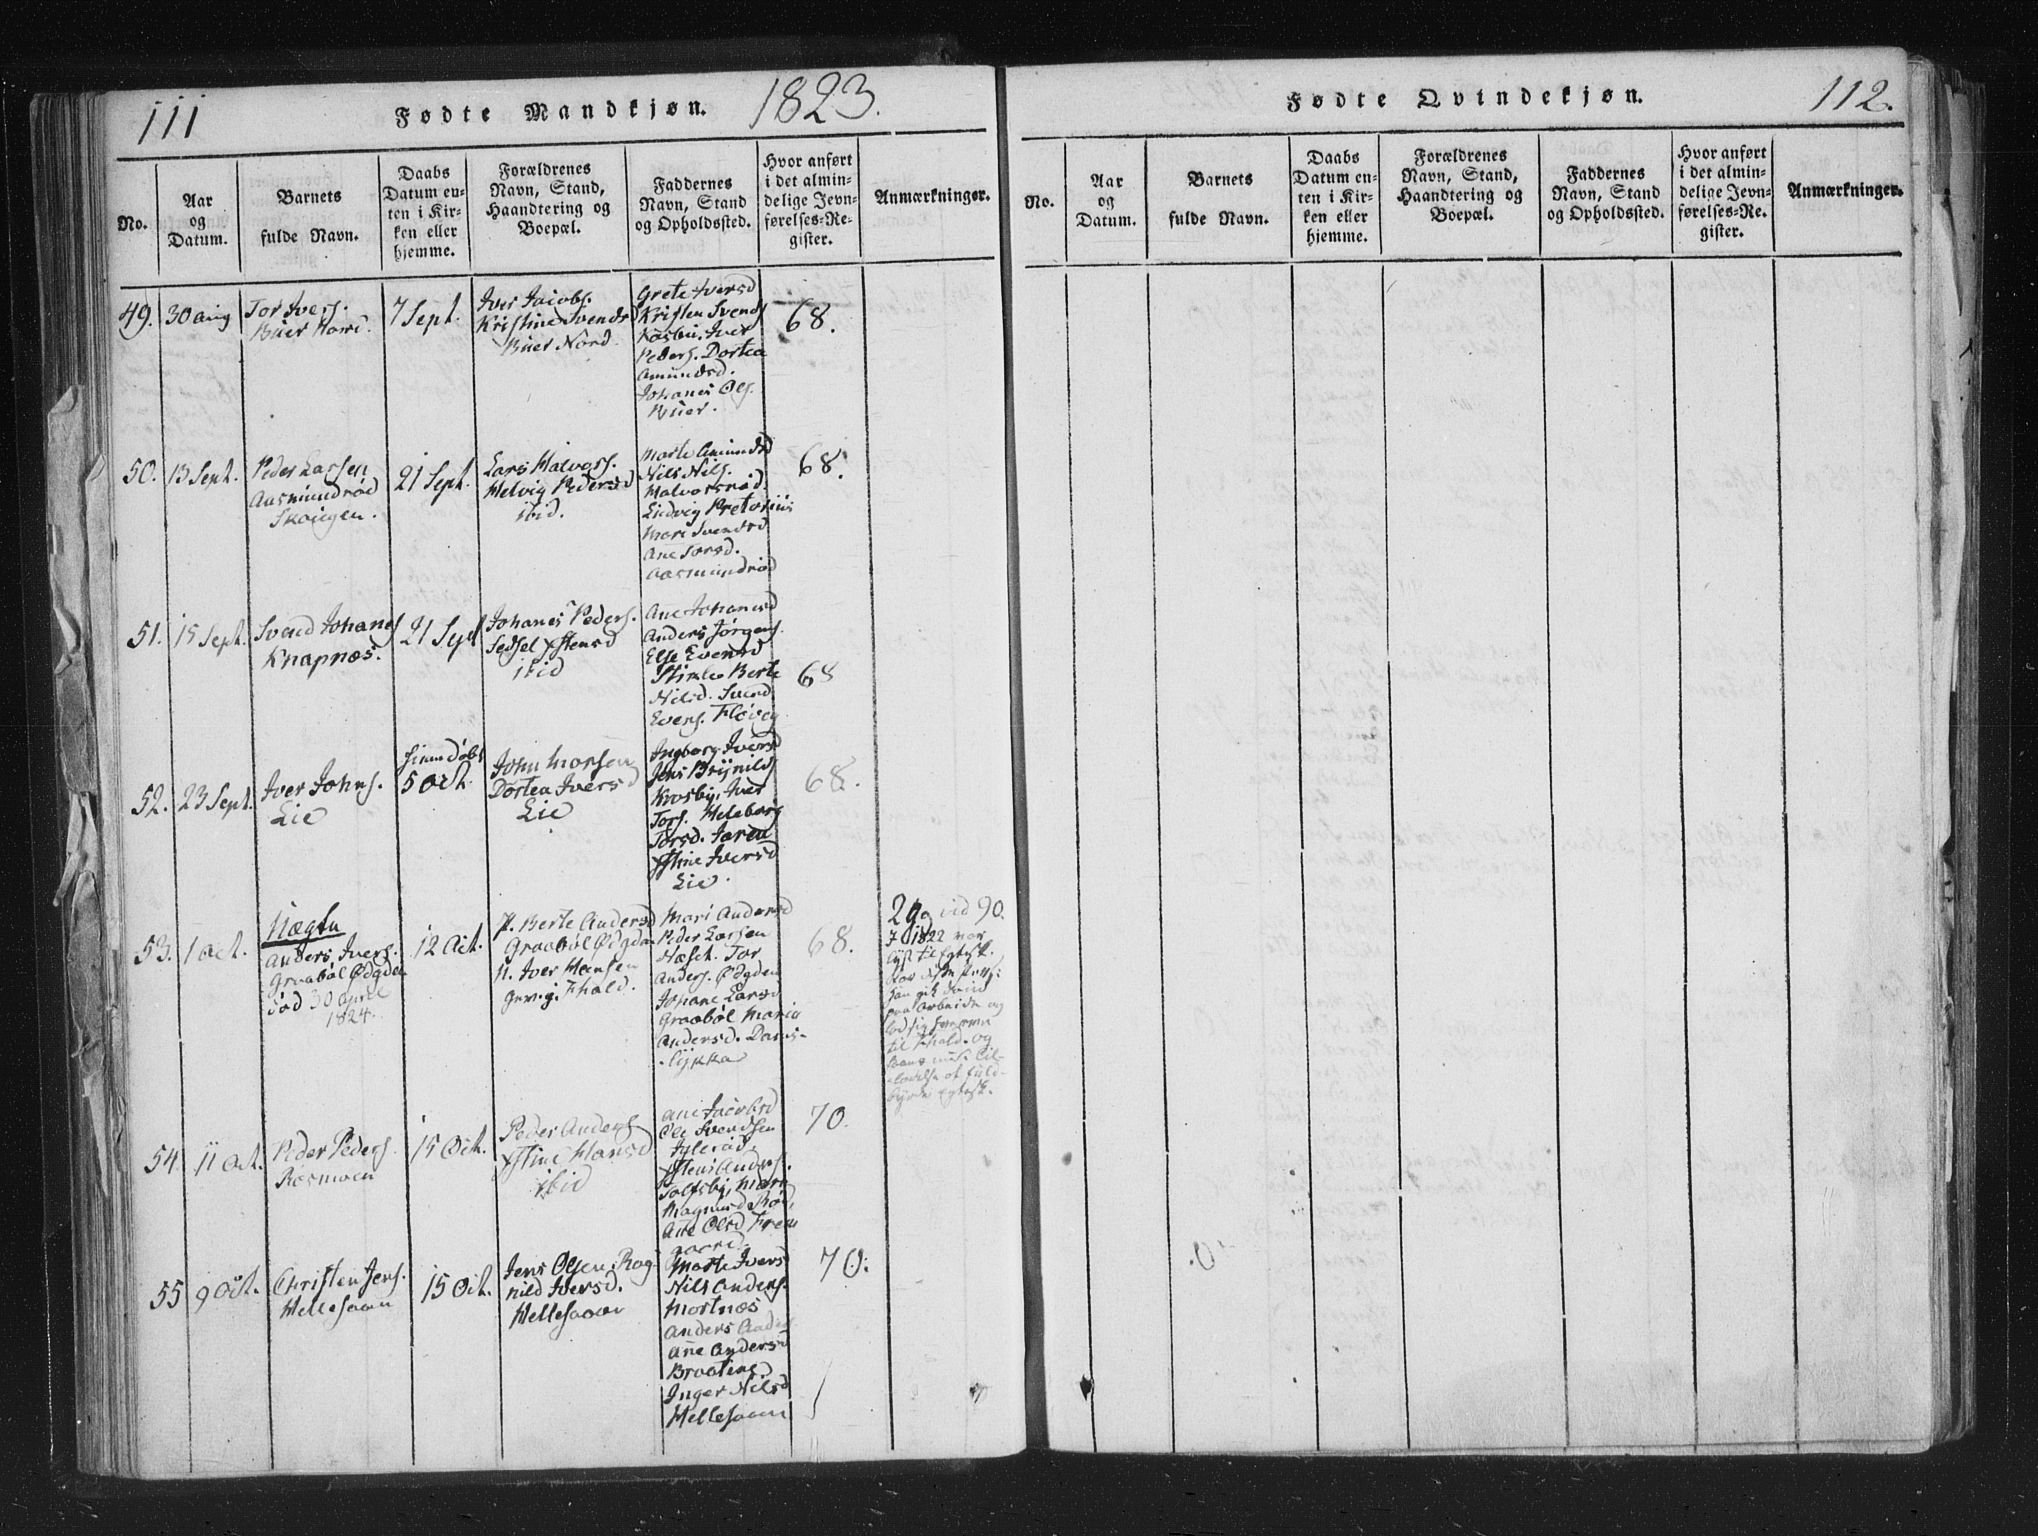 111
Fødte Mandkjøn.
1823.
No.
Aar
og
Datum.
Barnets
fulde Navn.
Daabs
Datum en-
ten i Kir-
ken eller
hjemme.
Forældrenes
Navn, Stand,
Haandtering og
Boepæl.
Faddernes
Navn, Stand
og Opholdssted.
Hvor anført
i det almin-
delige Jevn-
førelses-Re-
gister.
Anmærkninger.
49.
30 aug
Tor Ivers.
Buer Nord.
7 Sept.
Iver Jacobs.
Kristine Svends
Buer Nord.
Grete Iversd
Kristen Svends
Kasbu, Iver
Peders. Dortea
Amundsd.
Johanes Ols.
Buer.
68.
50.
13 Sept.
Peder Larsen
Aasmundrød
Skougen.
21 Sept.
Lars Halvors.
Helvig Pedersd
ibid.
Marte Amundsd
Nils Nils.
Halvorsrød.
Ludvig Pretorius
Mari Svendsd
Ane Torsd.
Aasmundrød
68.
51.
15 Sept.
Svend Johanes
Knapnæs.
21 Sept
Johanes Peders.
Sedsel Xstensd
ibid
Ane Johansd
Anders Jørgens.
Else Evensd
Berte
Nilsd. Svend
Evens. Fløveg
68
52.
23 Sept.
Iver Johns.
Lie
5 Oct.
John Morsen
Dortea Iversd
Lie
Ingborg Iversd
Jens Brynilds
Krosby, Iver
Tors. Heleborg
Torsd. Jaren
Xstine Iversd
Lie.
68.
53.
1 Oct.
Uægte
Anders Ivers.
Graabøl Ødgden
død 30 april
1824.
12 Oct.
P. Berte Andersd
Graabøl Ødgden
U. Iver Hansen
Fhald.
Mari Andersd
Peder Larsen
Tor
Anders. Ødgden
Johane Larsd
Graabøl Maria
Andersd. Dans-
-lykka
68.
1822 var
lyst til Egtesk.
paa Arbeide og
til Fhald. og
byrde Egtesk.
54.
11 Oct.
Peder Peders.
Rosmoen
15 Oct.
Peder Anders
Xstine Hansd
ibid
Ane Jacobsd
Ole Svendsen
Xsten Anders.
Tolfsby, Mari
Magnusd Rød,
Ane Olsd Frem
gaard.
70.
55
9 Oct.
Christen Jens.
Hellesaaen
15 Oct.
Jens Olsen, Rag-
nild Iversd.
Hellesaaen
Marte Ivers
Nils Anders.
Mortnæs
Anders Anders
Ane Andersd
Braatene
Inger Nilsd
Hellesaaen
70.
Fødte Qvindekjøn.
112.
No.
Aar
og
Datum.
Barnets
fulde Navn.
Daabs
Datum en-
ten i Kir-
ken eller
hjemme.
Forældrenes
Navn, Stand,
Haandtering og
Boepæl.
Faddernes
Navn, Stand
og Opholdssted.
Hvor anført
i det almin-
delige Jevn-
førelses-Re-
gister.
Anmærkninger.